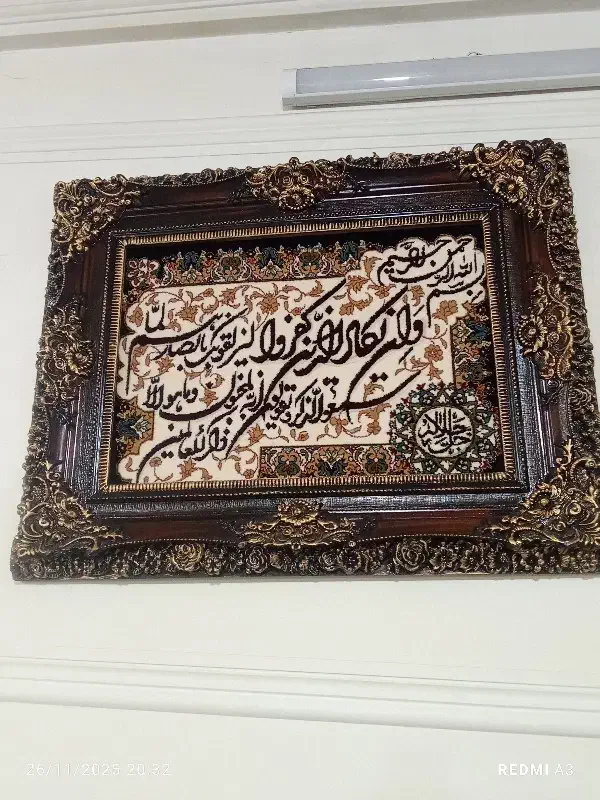 بسم الله الرحمن الرحیم
وان یکاد الذین کفروا لیزلقونک بابصارهم لما
سمعوا الذکر و یقولون انه لمجنون وما هو الا
ذکر للعالمین
الله جل جلاله
26/11/2025 20:32
REDMI A3